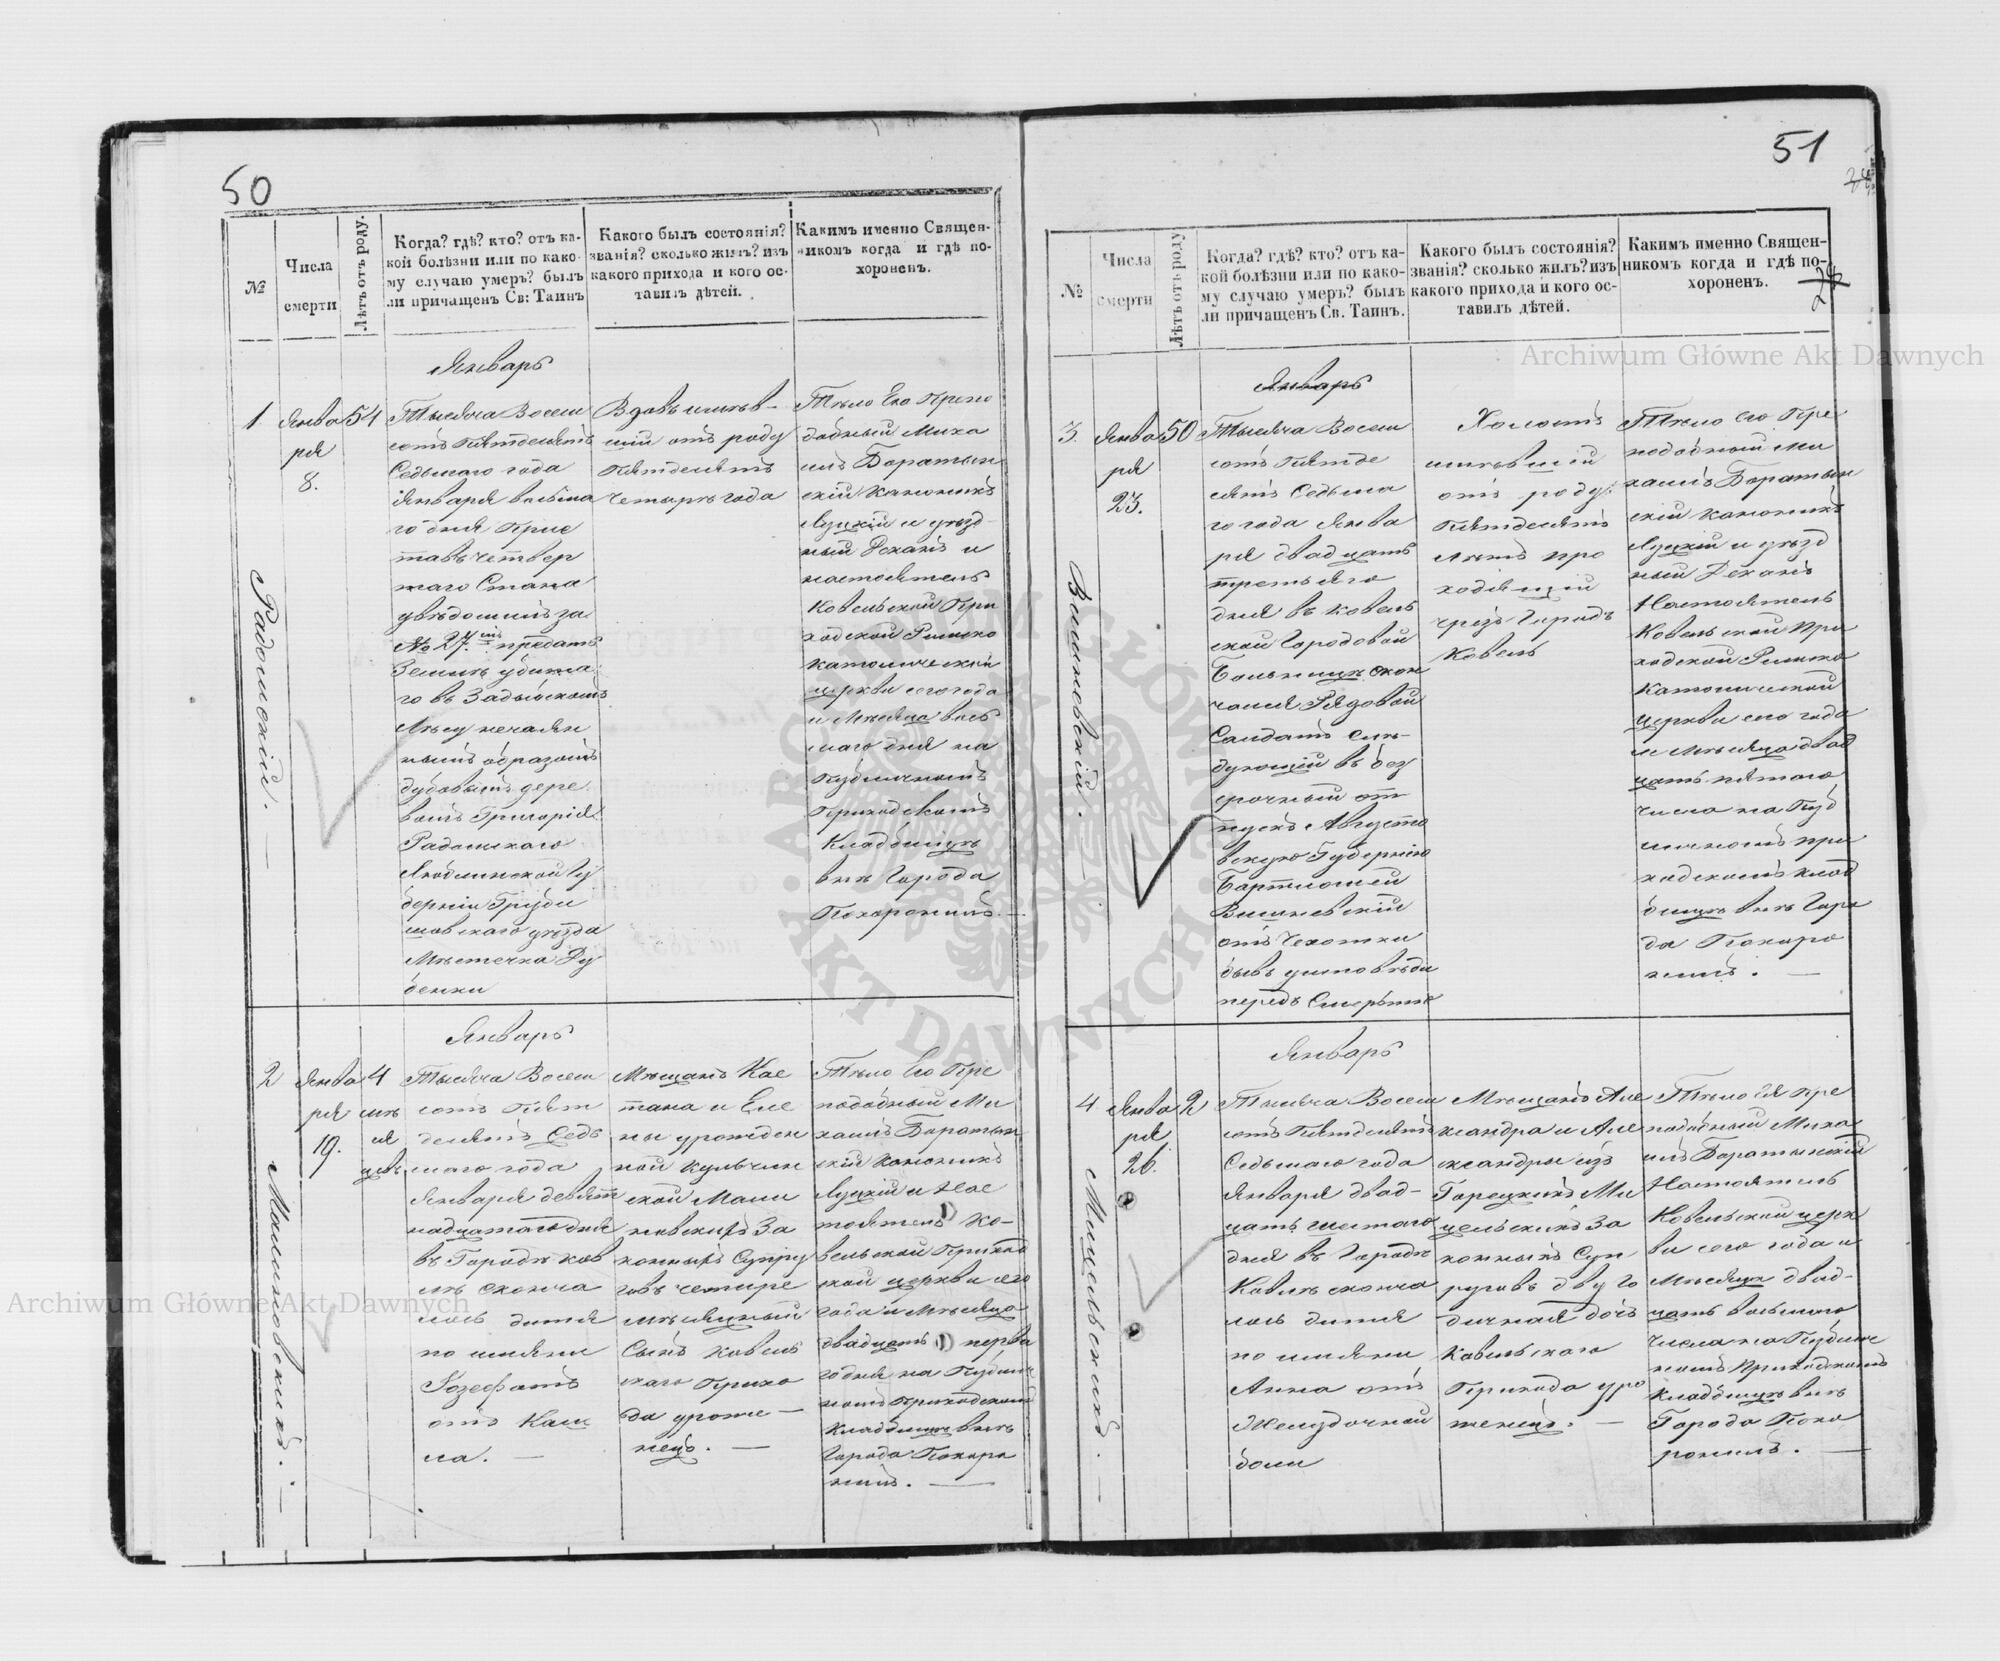 50
№
Числа
смерти
Лѣтъ отъ роду.
Когда? гдѣ? кто? отъ ка-
кой болѣзни или по како-
му случаю умеръ? былъ
ли причащенъ Св: Таинъ
Какого былъ состоянія?
званія? сколько жилъ? изъ
какого прихода и кого ос-
тавилъ дѣтей.
Какимъ именно Священ-
никомъ когда и гдѣ по-
хороненъ.
Январь
1
Радомскій. —
Янва
ря
8.
54
Тысяча Восем
сотъ Пятдесятъ
Седьмаго года
Января восьма
го дня Прис
тавъ четвер
таго Стана
увѣдомилъ за
№ 27. предать
Землѣ убита
го въ
Лѣсу нечаян
нымъ образомъ
дубовымъ дере
вомъ Григорія
Радомскаго
Люблинской Гу
берніи Груби
шовскаго уѣзда
Мѣстечка Ду
бенки
Вдовъ имѣв-
шій отъ роду
Пятдесятъ
четыре года
Тѣло Его Препо
добный Миха
илъ Боратын
скій Каноникъ
Луцкій и уѣзд
ный Деканъ и
настоятель
Ковельской При
ходской Римско
католической
церкви сегогода
и Мѣсяца вось
маго дня на
Публичномъ
Приходскомъ
Кладбищѣ
внѣ Города
Похоронилъ. —
Январь
2
Малиновскихъ. —
Янва
ря
19.
4
мѣ
ся
цевъ
Тысяча Восем
сотъ Пят
десятъ Седь
маго года
Января девят
надцатаго дня
въ Городѣ Ков
лѣ сконча
лось дитя
по имяни
Іозефатъ
отъ Каш
ля. —
Мѣщанъ Кае
тана и Еле
ны урожден
ной Кульчин
ской Мали
новскихъ За
конныхъ Супру
говъ четыре
мѣсячный
Сынъ Ковель
скаго Прихо
да уроже —
нецъ. —
Тѣло Его Пре
подобный Ми
хаилъ Боратын
скій Каноникъ
Луцкій и Нас
тоятель Ко-
вельской Приход
ской церкви сего
года и Мѣсяца
двадцать перва
го дня на Публич
номъ Приходском
Кладбищѣ внѣ
Города Похоро
нилъ. —
51
№
Числа
смерти
Лѣтъ отъ роду
Когда? гдѣ? кто? отъ ка-
кой болѣзни или по како-
му случаю умеръ? былъ
ли причащенъ Св. Таинъ.
Какого былъ состоянія?
званія? сколько жилъ? изъ
какого прихода и кого ос-
тавилъ дѣтей.
Какимъ именно Священ-
никомъ когда и гдѣ по-
хороненъ.
Archiwum Główne Akt Dawnych
Январь
3.
Вишневскій. —
Янва
ря
23.
50
Тысяча Восем
сотъ Пятде
сятъ Седьма
го года Янва
ря двадцать
третьяго
дня въ Ковель
ской Городовой
Больницѣ скон
чался Рядовой
Солдатъ слѣ-
дующій въ без
срочный от
пускъ Августо
вскую Губернію
Бартломей
Вишневскій
отъ Чехотки
бывъ
передъ Смертью
Холостъ
имѣвшій
отъ роду
Пятдесятъ
лѣтъ про
ходящій
чрезъ Городъ
Ковель
Тѣло его Пре
подобный Ми
хаилъ Боратын
скій каноникъ
Луцкій и уѣзд
ный Деканъ
Настоятель
Ковельской При
ходской Римско
Католической
церкви сего года
и Мѣсяца двад
цать пятаго
числа на Пуб
личномъ при
ходскомъ клад
бищѣ внѣ Горо
да Похоро
нилъ. —
Январь
4
Мицельскихъ. —
Янва
ря
26.
2
Тысяча Восем
сотъ Пятдесятъ
Седьмаго года
Января двад-
цать шестаго
дня въ Городѣ
Ковлѣ сконча
лось дитя
по имяни
Анна отъ
Желудочной
боли
Мѣщанъ Але
ксандра и Але
ксандры изъ
Горецкихъ Ми
цельскихъ За
конныхъ Суп
руговъ двуго
дичная дочь
Ковельскаго
Прихода уро
женецъ. —
Тѣло ея Пре
подобный Миха
илъ Боратынскій
Настоятель
Ковельской церк
ви сего года и
Мѣсяца двад-
цать восьмаго
числа на Публич
номъ Приходскомъ
Кладбищѣ внѣ
Города Похо
ронилъ. —
Archiwum Główne Akt Dawnych
ARCHIWUM GŁÓWNE AKT DAWNYCH